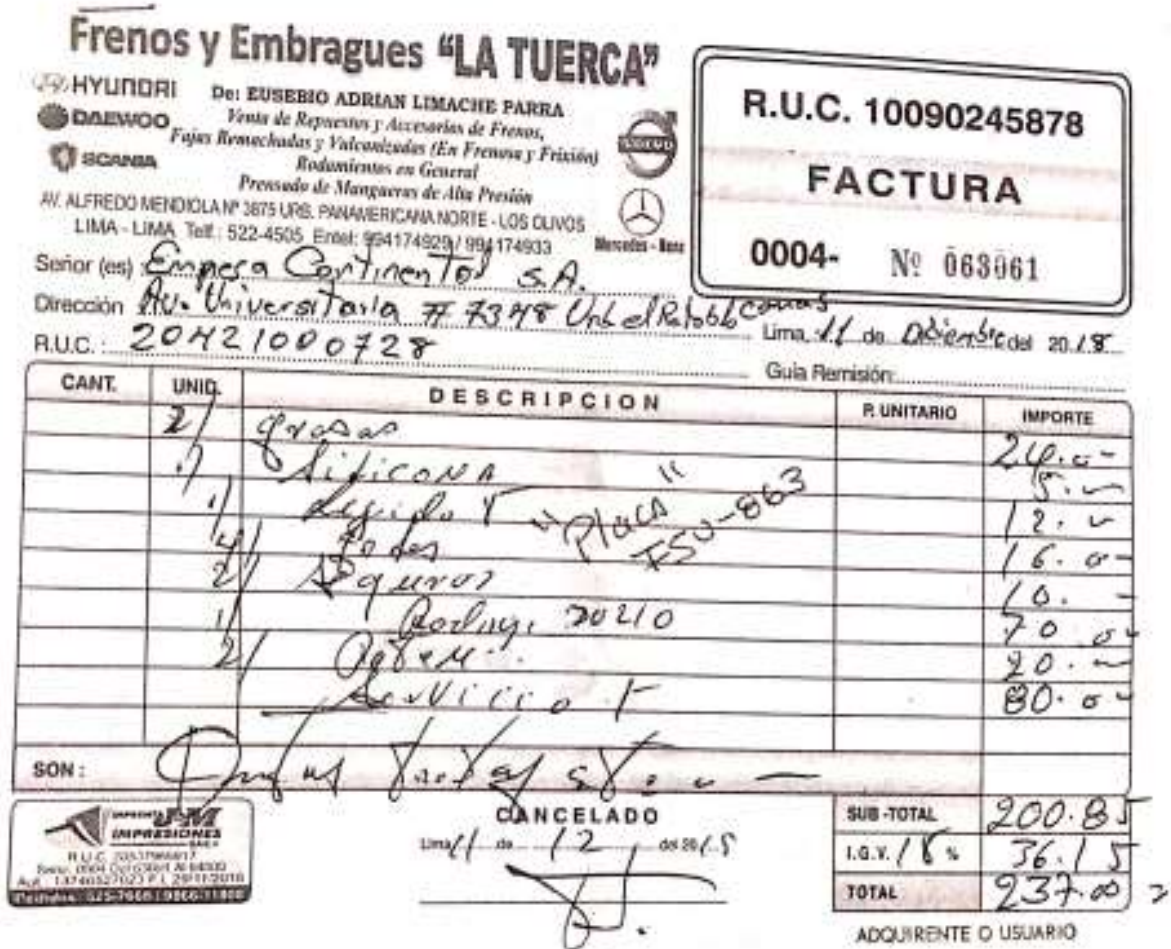 Frenos y Embragues "LA TUERCA"
HYUNDAI
DAEWOO
SCANIA
De: EUSEBIO ADRIAN LIMACHE PARRA
Venta de Repuestos y Accesorios de Frenos,
Fajas Remachadas y Valconizadas (En Frenosa y Frixión)
Rodamientos en General
Prensado de Mangueras de Alta Presión
AV. ALFREDO MENDIOLA Nº 3875 URB. PANAMERICANA NORTE - LOS OLIVOS
LIMA - LIMA Telf.: 522-4505 Entel: 994174929 / 994174933
VOLVO
Mercedes - Benz
R.U.C. 10090245878
FACTURA
0004- Nº 063061
Señor (es) Empresa Continental S.A.
Dirección Av. Universitaria # 7348 Urb el Retablo Comas
Lima, 11 de Diciembre del 2018
R.U.C.: 20421000728
Guía Remisión:
CANT. UNID. DESCRIPCION P. UNITARIO IMPORTE
2/ grasas 24.00
1/ Silicona 5.
1/ 12.
4/ 16.00
2/ Seguros 10.
1/ Rodaje 30210 70.00
2/ 20.
Servicio 80.00
"Placa"
F5U-863
SON:
CANCELADO
Lima 11 de 12 del 2018
SUB-TOTAL 200.85
I.G.V. 18% 36.15
TOTAL 237.00
IMPRENTA J&M
IMPRESIONES
R.U.C.
ADQUIRENTE O USUARIO